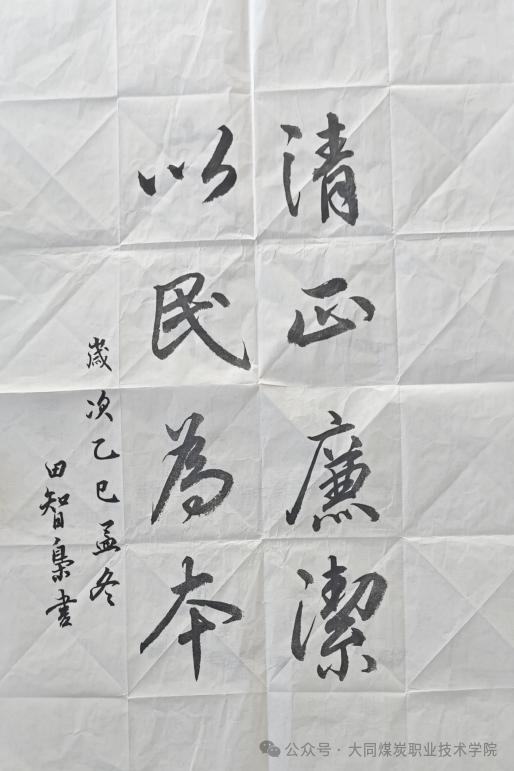 清正廉潔
以民為本
歲次乙巳孟冬
田智梟書
公众号·大同煤炭职业技术学院